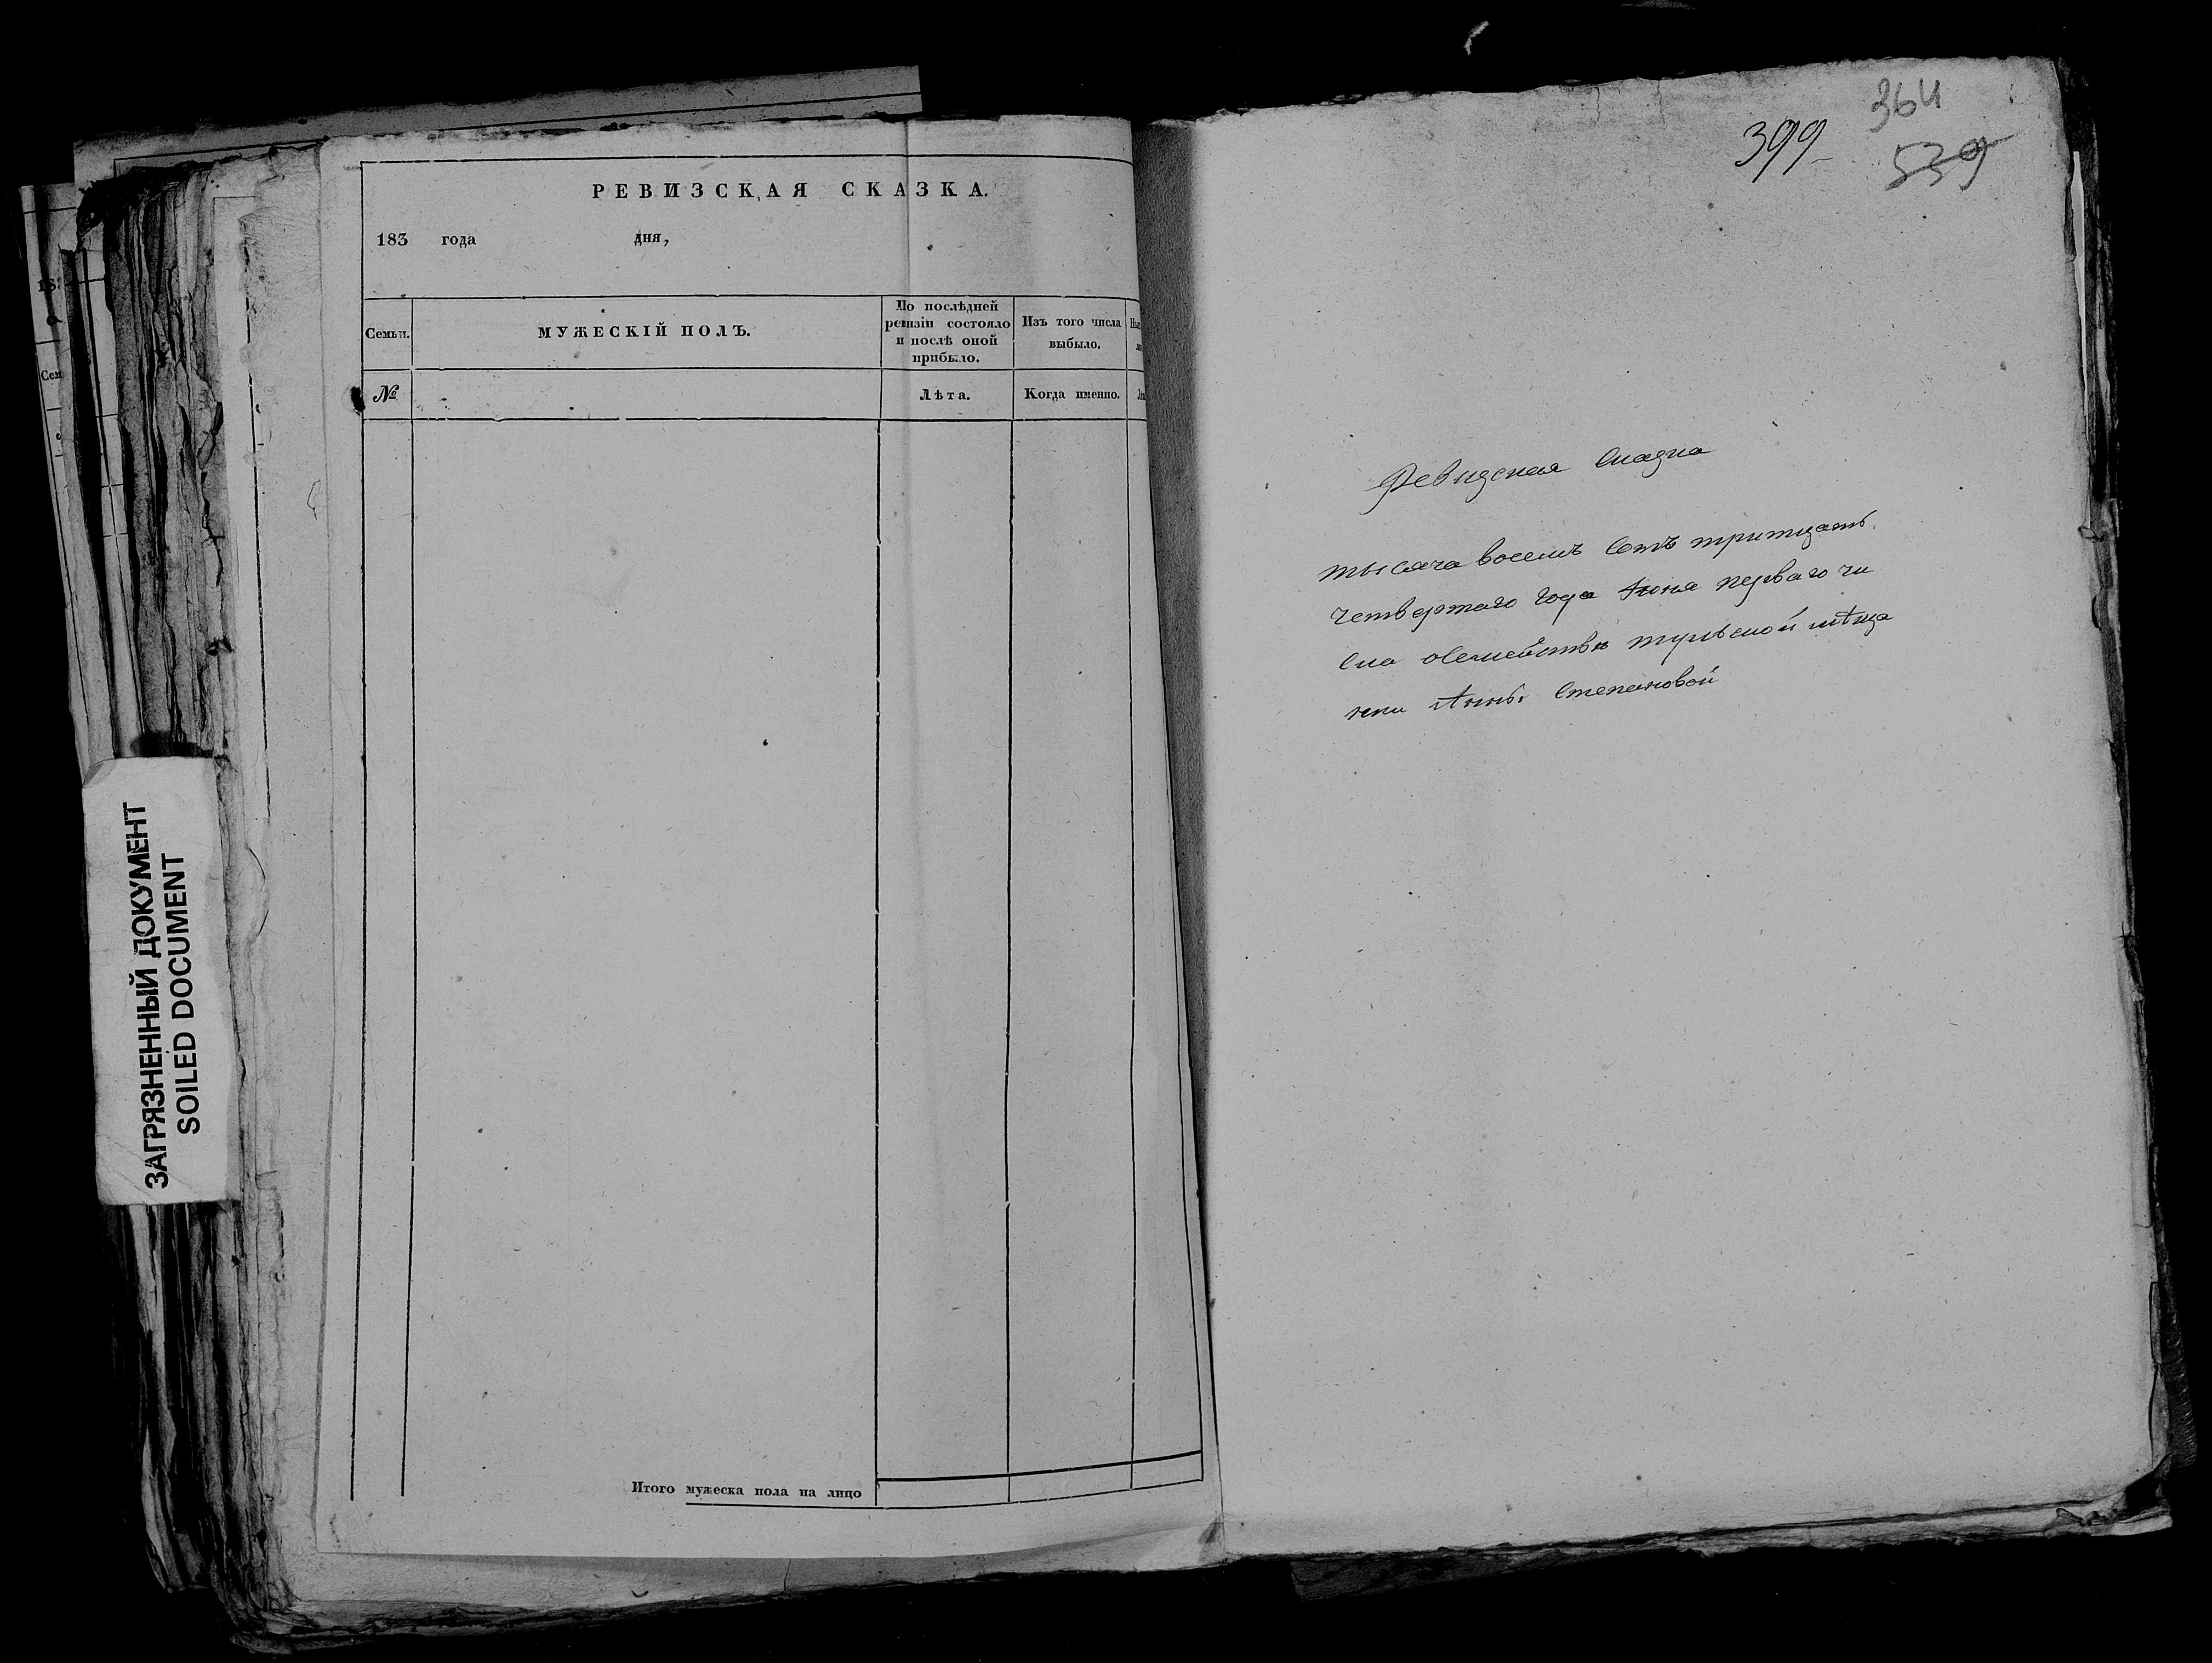 РЕВИЗСКАЯ СКАЗКА.
183 года дня,
Семьи.
МУЖЕСКІЙ ПОЛЪ.
По послѣдней
ревизіи состояло
и послѣ оной
прибыло.
Изъ того числа
выбыло.
№
Лѣта.
Когда именно.
Итого мужеска пола на лицо
ЗАГРЯЗНЕННЫЙ ДОКУМЕНТ
SOILED DOCUMENT
364
399
539
Ревизская Сказка
тысяча восемь Сотъ тритцать
четвертаго года Июня перваго чи
сла осемействѣ тульской мѣща
нки Анны Степановой